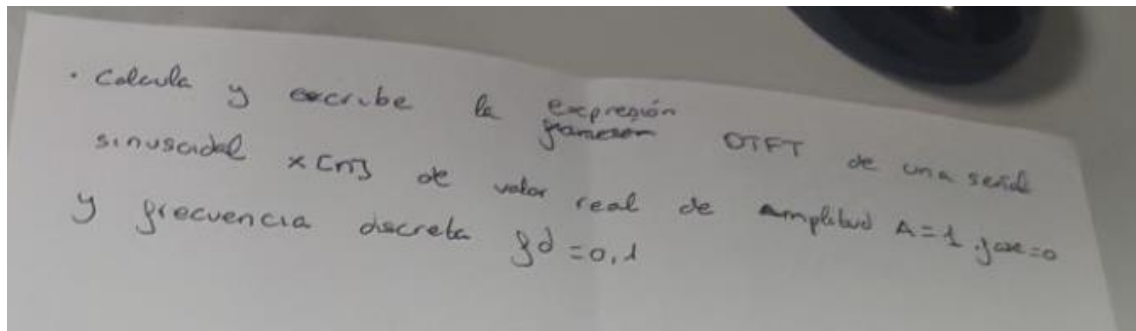 · Calcula y escribe la expresión DTFT de una señal
sinusoidal x[n] de valor real de amplitud A=1, fase=0
y frecuencia discreta fd=0,1